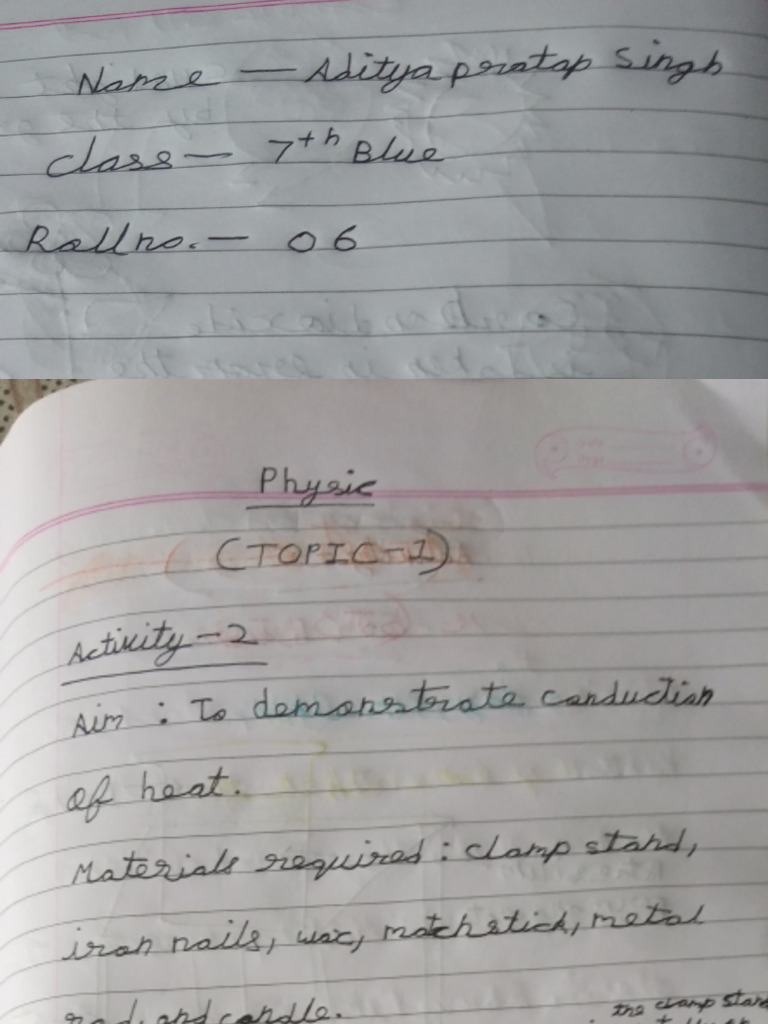 Name — Aditya pratap Singh
Class — 7th Blue
Roll no. — 06
Physic
(TOPIC-1)
Activity-2
Aim : To demonstrate conduction
of heat.
Materials required : clamp stand,
iron nails, wax, match stick, metal
rod, and candle.
the clamp stand